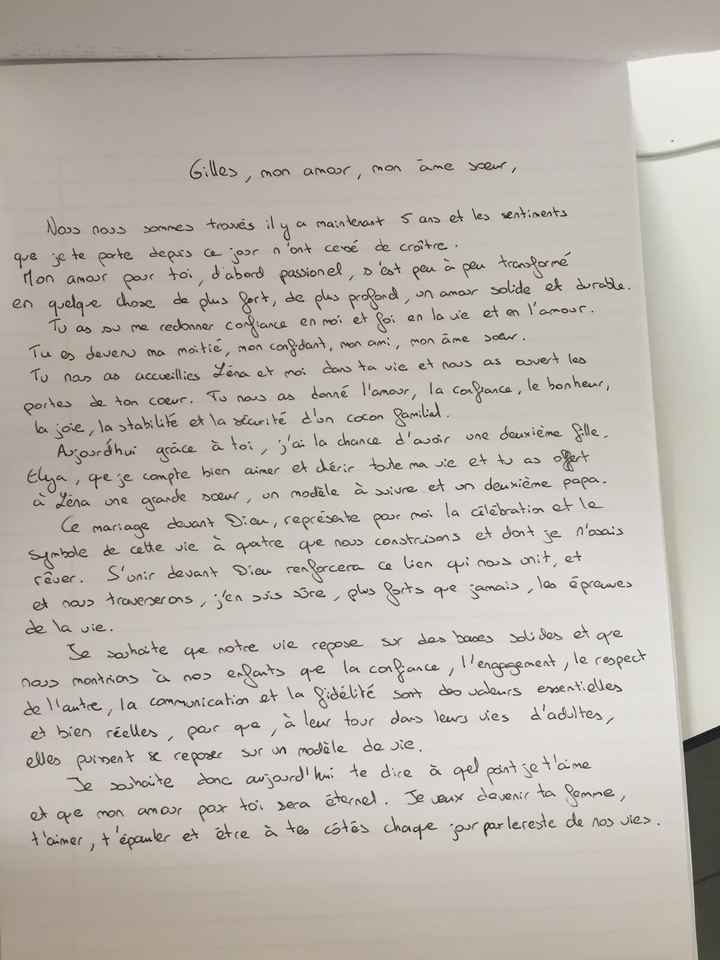 Gilles, mon amour, mon âme sœur,
Nous nous sommes trouvés il y a maintenant 5 ans et les sentiments
que je te porte depuis ce jour n'ont cessé de croître.
Mon amour pour toi, d'abord passionel, s'est peu à peu transformé
en quelque chose de plus fort, de plus profond, un amour solide et durable.
Tu as su me redonner confiance en moi et foi en la vie et en l'amour.
Tu es devenu ma moitié, mon confidant, mon ami, mon âme sœur.
Tu nous as accueillies Léna et moi dans ta vie et nous as ouvert les
portes de ton coeur. Tu nous as donné l'amour, la confiance, le bonheur,
la joie, la stabilité et la sécurité d'un cocon familial.
Aujourd'hui grâce à toi, j'ai la chance d'avoir une deuxième fille.
Elya, que je compte bien aimer et chérir toute ma vie et tu as offert
à Léna une grande sœur, un modèle à suivre et un deuxième papa.
Ce mariage devant Dieu, représente pour moi la célébration et le
symbole de cette vie à quatre que nous construisons et dont je n'osais
rêver. S'unir devant Dieu renforcera ce lien qui nous unit, et
et nous traverserons, j'en suis sûre, plus forts que jamais, les épreuves
de la vie.
Je souhaite que notre vie repose sur des bases solides et que
nous montrions à nos enfants que la confiance, l'engagement, le respect
de l'autre, la communication et la fidélité sont des valeurs essentielles
et bien réelles, pour que, à leur tour dans leurs vies d'adultes,
elles puissent se reposer sur un modèle de vie.
Je souhaite donc aujourd'hui te dire à quel point je t'aime
et que mon amour pour toi sera éternel. Je veux devenir ta femme,
t'aimer, t'épauler et être à tes côtés chaque jour par le reste de nos vies.